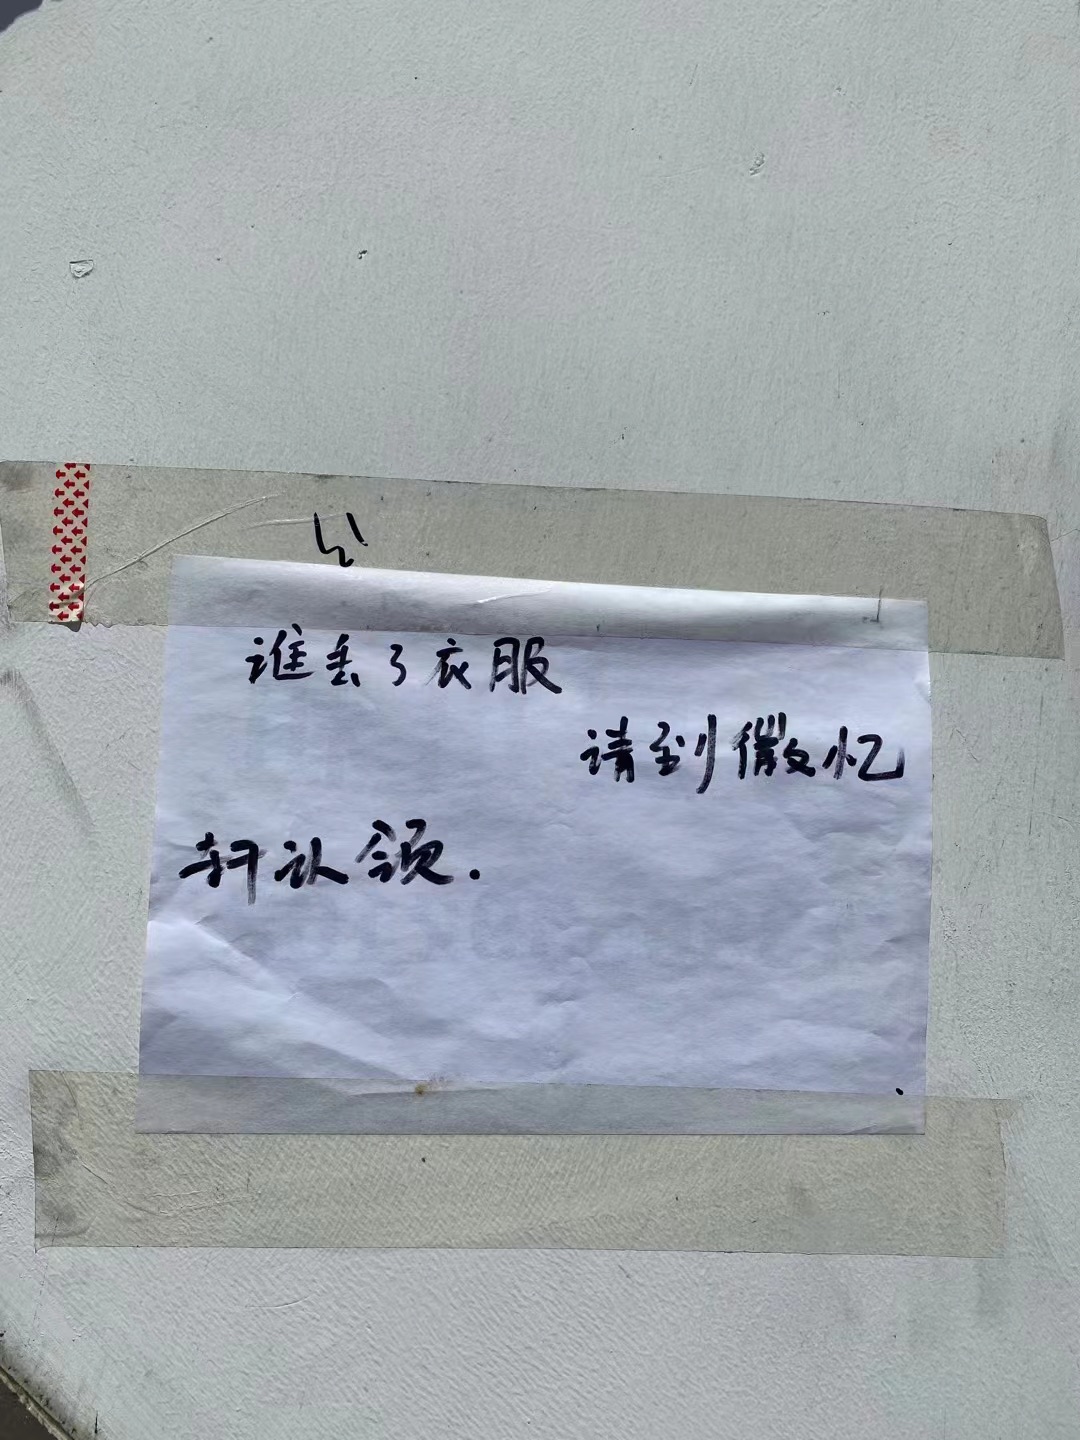 谁丢了衣服
请到微忆
轩认领.